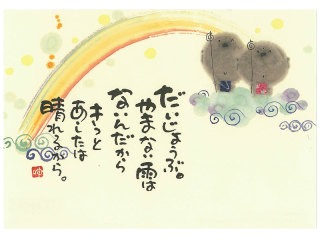 だいじょうぶ。
やまない雨は
ないんだから
きっと
あしたは
晴れるから。